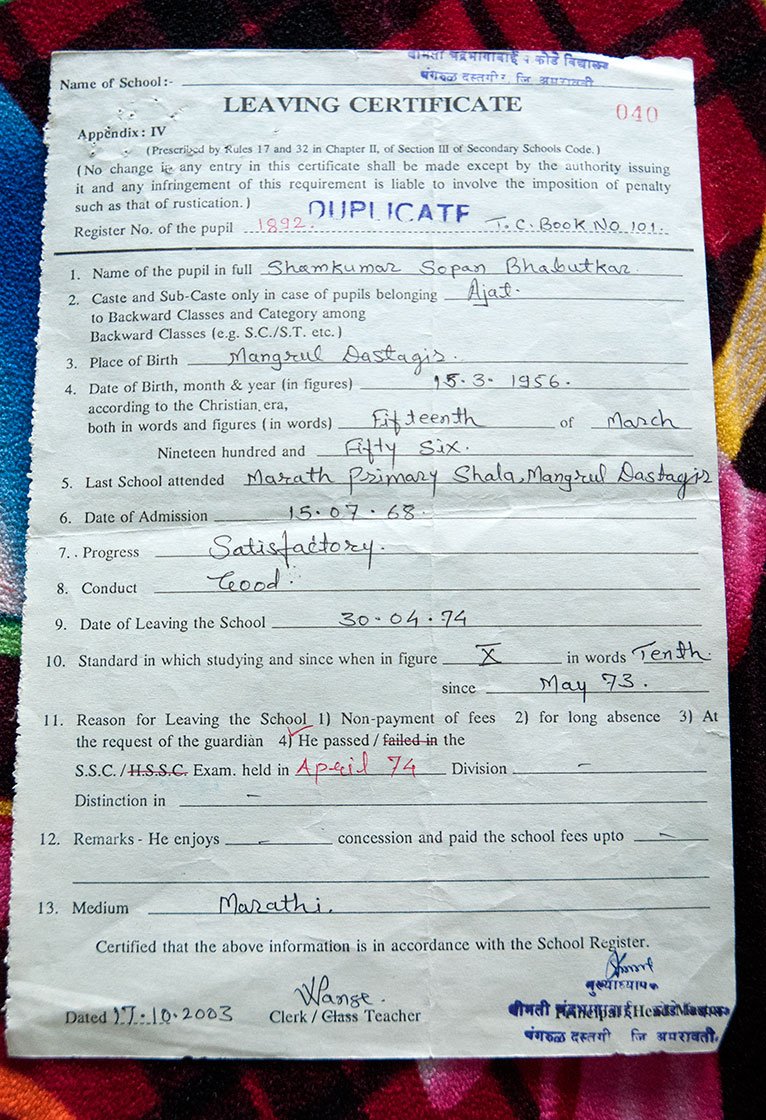 श्रीमती चंद्रभागाबाई र कोडे विद्यालय
Name of School:-
मंगरुळ दस्तगीर, जि अमरावती
LEAVING CERTIFICATE
040
Appendix: IV
(Prescribed by Rules 17 and 32 in Chapter II, of Section III of Secondary Schools Code.)
(No change in any entry in this certificate shall be made except by the authority issuing
it and any infringement of this requirement is liable to involve the imposition of penalty
such as that of rustication.) DUPLICATE
Register No. of the pupil 1892. T.C. Book No 101.
1. Name of the pupil in full Shamkumar Sopan Bhabutkar.
2. Caste and Sub-Caste only in case of pupils belonging Ajat.
to Backward Classes and Category among
Backward Classes (e.g. S.C./S.T. etc.)
3. Place of Birth Mangrul Dastagir.
4. Date of Birth, month & year (in figures) 15.3.1956.
according to the Christian era,
both in words and figures (in words) Fifteenth of March
Nineteen hundred and Fifty Six.
5. Last School attended Marath Primary Shala, Mangrul Dastagir
6. Date of Admission 15.07.68.
7. Progress Satisfactory.
8. Conduct Good.
9. Date of Leaving the School 30.04.74
10. Standard in which studying and since when in figure X in words Tenth.
since May 73.
11. Reason for Leaving the School 1) Non-payment of fees 2) for long absence 3) At
the request of the guardian 4) He passed / failed in the
S.S.C. / H.S.S.C. Exam. held in April 74 Division -
Distinction in -
12. Remarks - He enjoys - concession and paid the school fees upto -
13. Medium Marathi.
Certified that the above information is in accordance with the School Register.
मुख्याध्यापक
Dated 17.10.2003 Clerk / Class Teacher Principal / Head Master
मंगरुळ दस्तगी जि अमरावती.